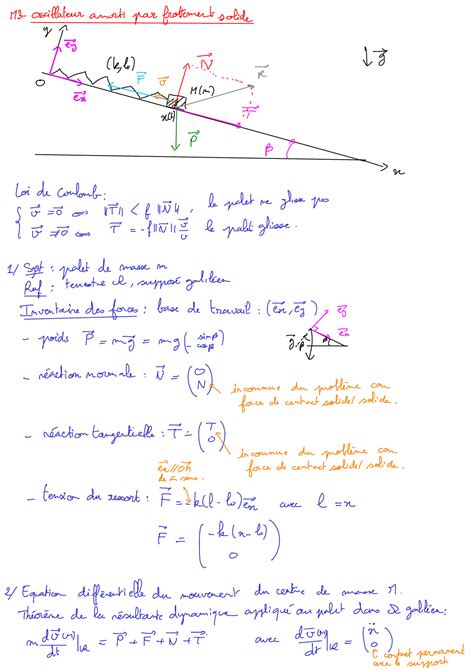 M3- oscillateur amorti par frottement solide
y
ey
(k,l0)
N
R
g
O
F
v
M(m)
ex
x(t)
T
P
β
x
Loi de Coulomb :
v = 0 ⇔ ||T|| < f ||N||, le palet ne glisse pas
v ≠ 0 ⇔ T = -f||N|| v/v le palet glisse.
1/ Syst : palet de masse m
Ref : terrestre R, supposé galiléen
Inventaire des forces : base de travail : (ex, ey)
ey
ex
- poids P = mg = mg (sinβ
-cosβ)
g
β
β
- réaction normale : N = (0
N)
inconnue du problème car
force de contact solide/solide.
- réaction tangentielle : T = (T
0)
inconnue du problème car
force de contact solide/solide.
de m sens.
- tension du ressort : F = -k(l-l0)ex avec l = x
F = (-k(x-l0)
0)
2/ Equation différentielle du mouvement du centre de masse M.
Théorème de la résultante dynamique appliqué au palet dans R galiléen :
m dv(M)/dt |R = P + F + N + T avec dv(M)/dt |R = (ẍ
0)
contact permanent
avec le support